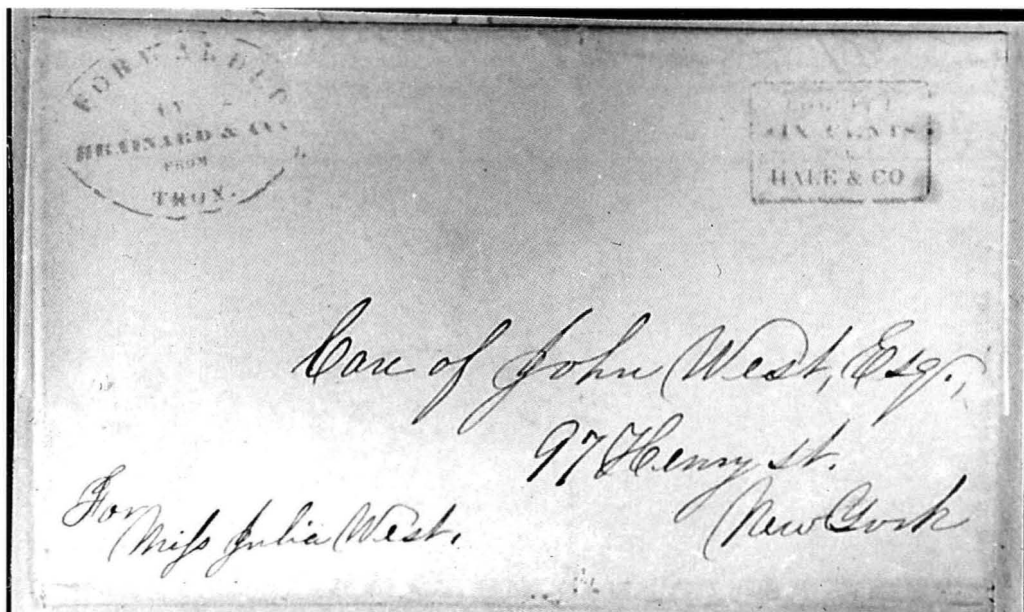 FORWARDED
BY
BRAINARD & CO.
FROM
TROY.
COLLECT
SIX CENTS
HALE & CO
Care of John West, Esqr.,
97 Henry st.
New York
For
Miss Julia West.